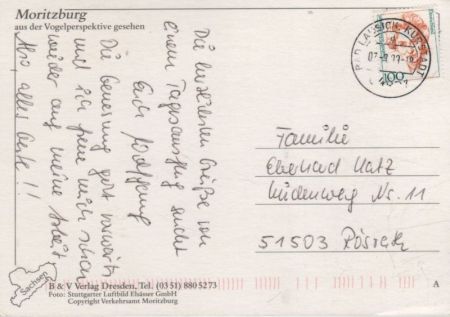 Moritzburg
aus der Vogelperspektive gesehen
Die herzlichsten Grüße von
einem Tagesausflug sendet
Euch Wolfgang
Die Genesung geht vorwärts
und ich freue mich schon
wieder auf meine Arbeit
Also, alles Gute !!
BAD LAUSICK KURSTADT
100
Familie
Eberhard Katz
Lüdenweg Nr. 11
51503 Rösrath
Sachsen
B & V Verlag Dresden, Tel. (03 51) 880 5273
Foto: Stuttgarter Luftbild Elsässer GmbH
Copyright Verkehrsamt Moritzburg
A